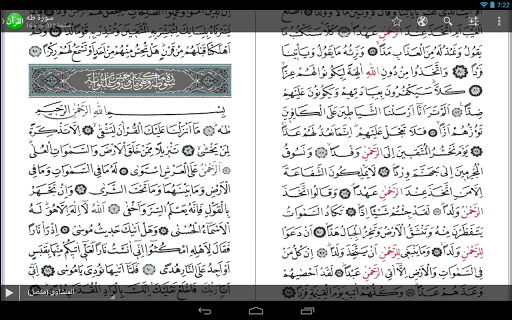 7:22
القرآن
سورة طه
يَقُولُ وَنَمُدُّ لَهُ مِنَ الْعَذَابِ مَدًّا وَنَرِثُهُ مَا يَقُولُ وَيَأْتِينَا
فَرْدًا وَاتَّخَذُوا مِنْ دُونِ اللَّهِ آلِهَةً لِيَكُونُوا لَهُمْ عِزًّا
كَلَّا سَيَكْفُرُونَ بِعِبَادَتِهِمْ وَيَكُونُونَ عَلَيْهِمْ
ضِدًّا أَلَمْ تَرَ أَنَّا أَرْسَلْنَا الشَّيَاطِينَ عَلَى الْكَافِرِينَ
تَؤُزُّهُمْ أَزًّا فَلَا تَعْجَلْ عَلَيْهِمْ إِنَّمَا نَعُدُّ لَهُمْ عَدًّا
يَوْمَ نَحْشُرُ الْمُتَّقِينَ إِلَى الرَّحْمَنِ وَفْدًا وَنَسُوقُ
الْمُجْرِمِينَ إِلَى جَهَنَّمَ وِرْدًا لَا يَمْلِكُونَ الشَّفَاعَةَ
إِلَّا مَنِ اتَّخَذَ عِنْدَ الرَّحْمَنِ عَهْدًا وَقَالُوا اتَّخَذَ
الرَّحْمَنُ وَلَدًا لَقَدْ جِئْتُمْ شَيْئًا إِدًّا تَكَادُ السَّمَوَاتُ
يَتَفَطَّرْنَ مِنْهُ وَتَنْشَقُّ الْأَرْضُ وَتَخِرُّ الْجِبَالُ هَدًّا أَنْ دَعَوْا
لِلرَّحْمَنِ وَلَدًا وَمَا يَنْبَغِي لِلرَّحْمَنِ أَنْ يَتَّخِذَ وَلَدًا إِنْ كُلُّ مَنْ
فِي السَّمَوَاتِ وَالْأَرْضِ إِلَّا آتِي الرَّحْمَنِ عَبْدًا لَقَدْ أَحْصَيهُمْ
وَعَدَّهُمْ عَدًّا وَكُلُّهُمْ آتِيهِ يَوْمَ الْقِيَامَةِ فَرْدًا
أَهْلَكْنَا قَبْلَهُمْ مِنْ قَرْنٍ هَلْ تُحِسُّ مِنْهُمْ مِنْ أَحَدٍ أَوْ تَسْمَعُ لَهُمْ رِكْزًا
بِسْمِ اللَّهِ الرَّحْمَنِ الرَّحِيمِ
طه مَا أَنْزَلْنَا عَلَيْكَ الْقُرْآنَ لِتَشْقَى إِلَّا تَذْكِرَةً
لِمَنْ يَخْشَى تَنْزِيلًا مِمَّنْ خَلَقَ الْأَرْضَ وَالسَّمَوَاتِ الْعُلَى
الرَّحْمَنُ عَلَى الْعَرْشِ اسْتَوَى لَهُ مَا فِي السَّمَوَاتِ وَمَا فِي
الْأَرْضِ وَمَا بَيْنَهُمَا وَمَا تَحْتَ الثَّرَى وَإِنْ تَجْهَرْ
بِالْقَوْلِ فَإِنَّهُ يَعْلَمُ السِّرَّ وَأَخْفَى اللَّهُ لَا إِلَهَ إِلَّا هُوَ لَهُ
الْأَسْمَاءُ الْحُسْنَى وَهَلْ أَتَيكَ حَدِيثُ مُوسَى إِذْ رَأَى نَارًا
فَقَالَ لِأَهْلِهِ امْكُثُوا إِنِّي آنَسْتُ نَارًا لَعَلِّي آتِيكُمْ مِنْهَا بِقَبَسٍ
أَوْ أَجِدُ عَلَى النَّارِ هُدًى فَلَمَّا أَتَيهَا نُودِيَ يَا مُوسَى
المنشاوي (متصل)